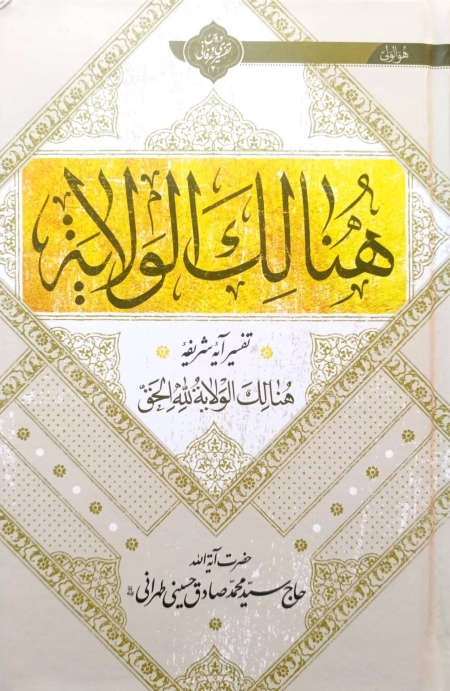 هو الولیّ
هُنالِكَ الوَلایَة
تفسیر آیهٔ شریفهٔ
هُنالِكَ الوَلایَةُ لِلّهِ الحَقِّ
حضرت آیة الله
حاج سیّد محمّد صادق حسینی طهرانی